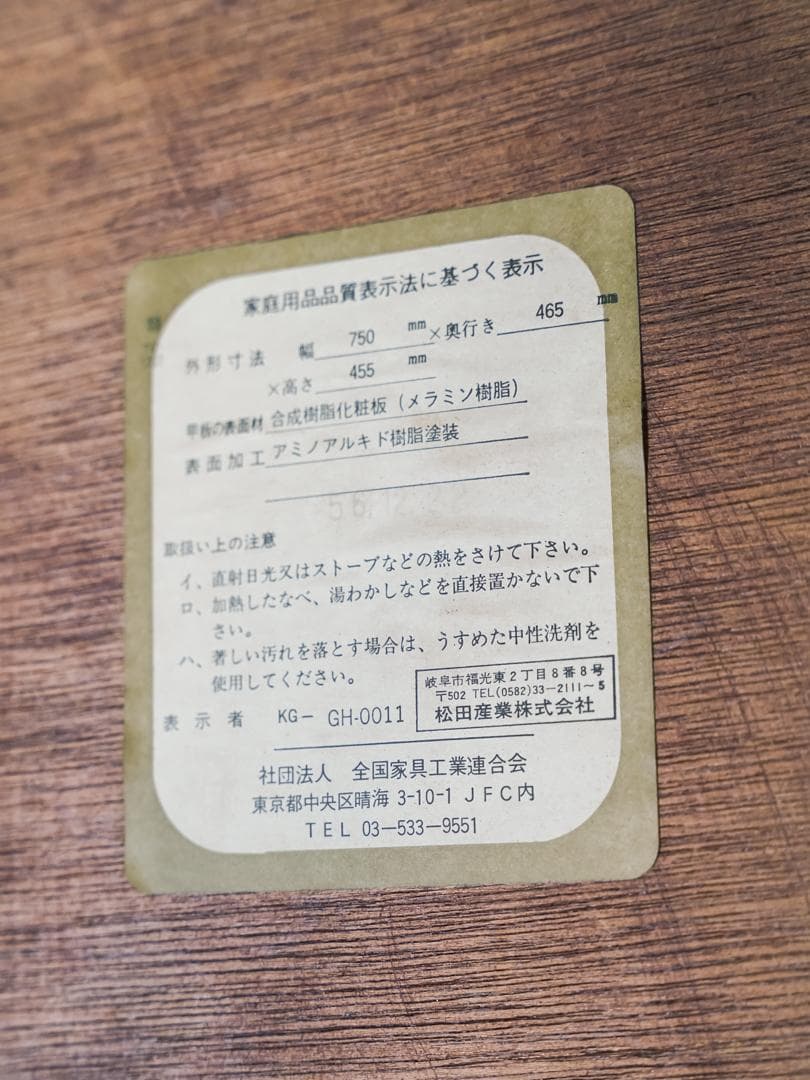 家庭用品品質表示法に基づく表示
外形寸法 幅 750 mm ×奥行き 465 mm
×高さ 455 mm
甲板の表面材 合成樹脂化粧板 (メラミン樹脂)
表面加工 アミノアルキド樹脂塗装
56.12.22
取扱い上の注意
イ、直射日光又はストーブなどの熱をさけて下さい。
ロ、加熱したなべ、湯わかしなどを直接置かないで下
さい。
ハ、著しい汚れを落とす場合は、うすめた中性洗剤を
使用してください。
岐阜市福光東2丁目8番8号
〒502 TEL(0582)33-2111〜5
松田産業株式会社
表示者 KG- GH-0011
社団法人 全国家具工業連合会
東京都中央区晴海 3-10-1 JFC内
TEL 03-533-9551